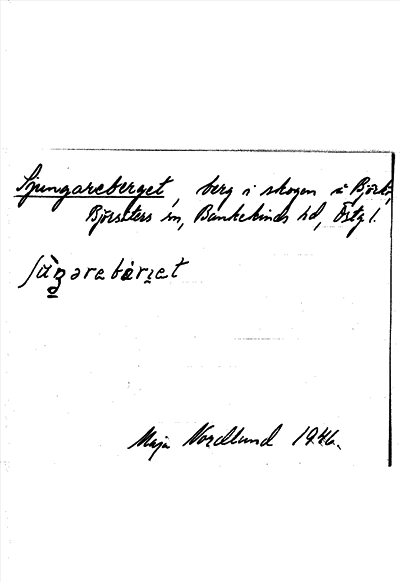 Sjungareberget, berg i skogen å Björkö,
Björsäters sn, Bankekinds hd, Östgl.
Maja Nordlund 1946.